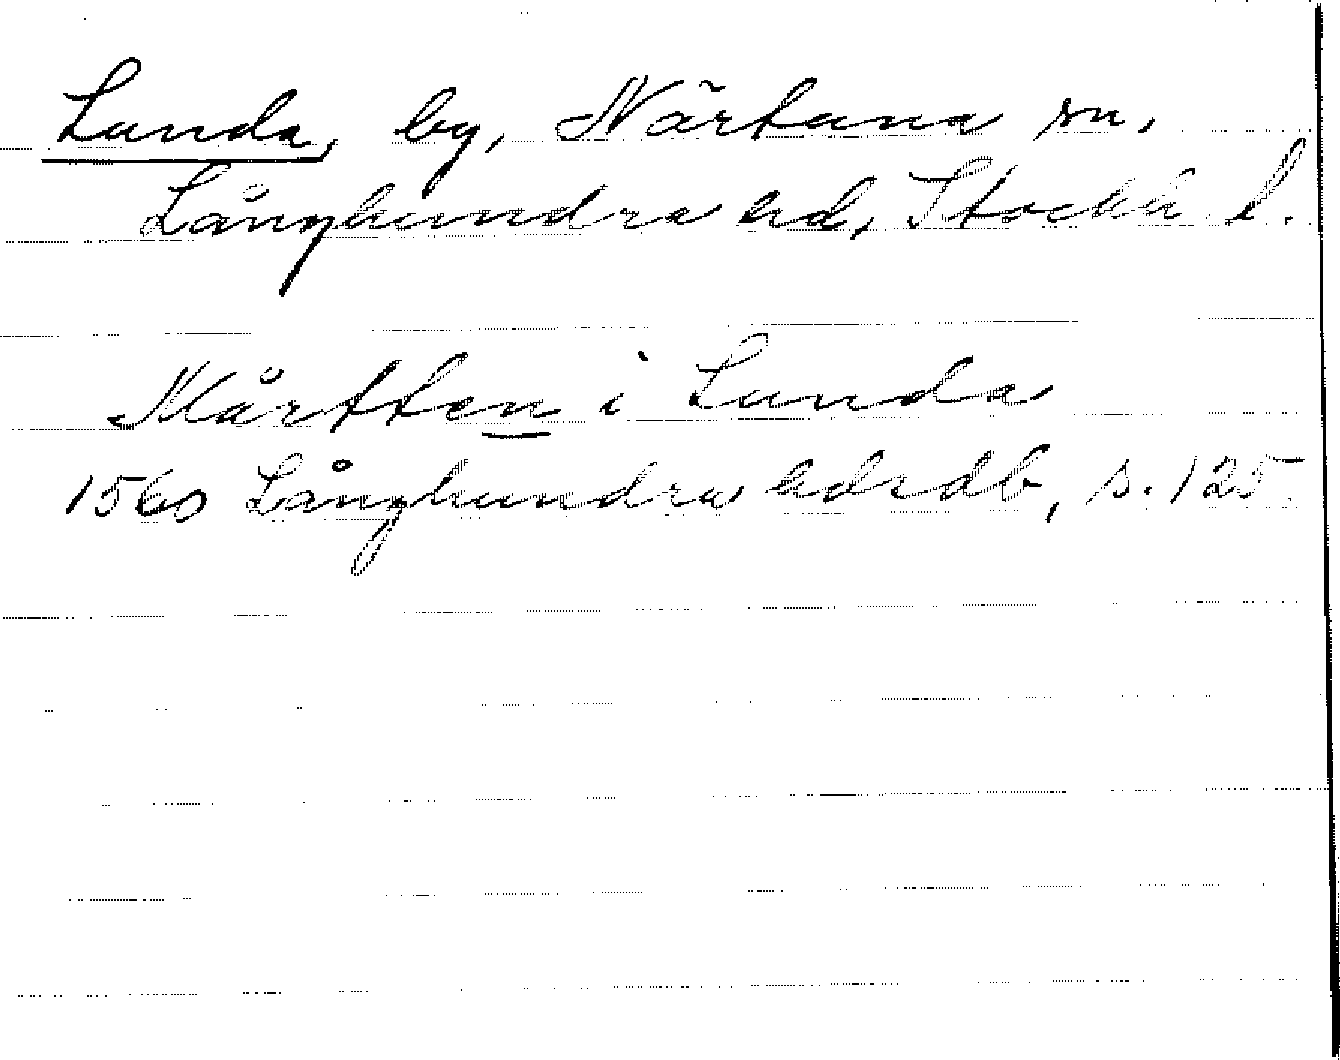 Lunda, by, Närtuna sn,
Långhundra hd, Stockh l.
Mårtten i Lunda
1560 Långhundra hdrdb, s. 125